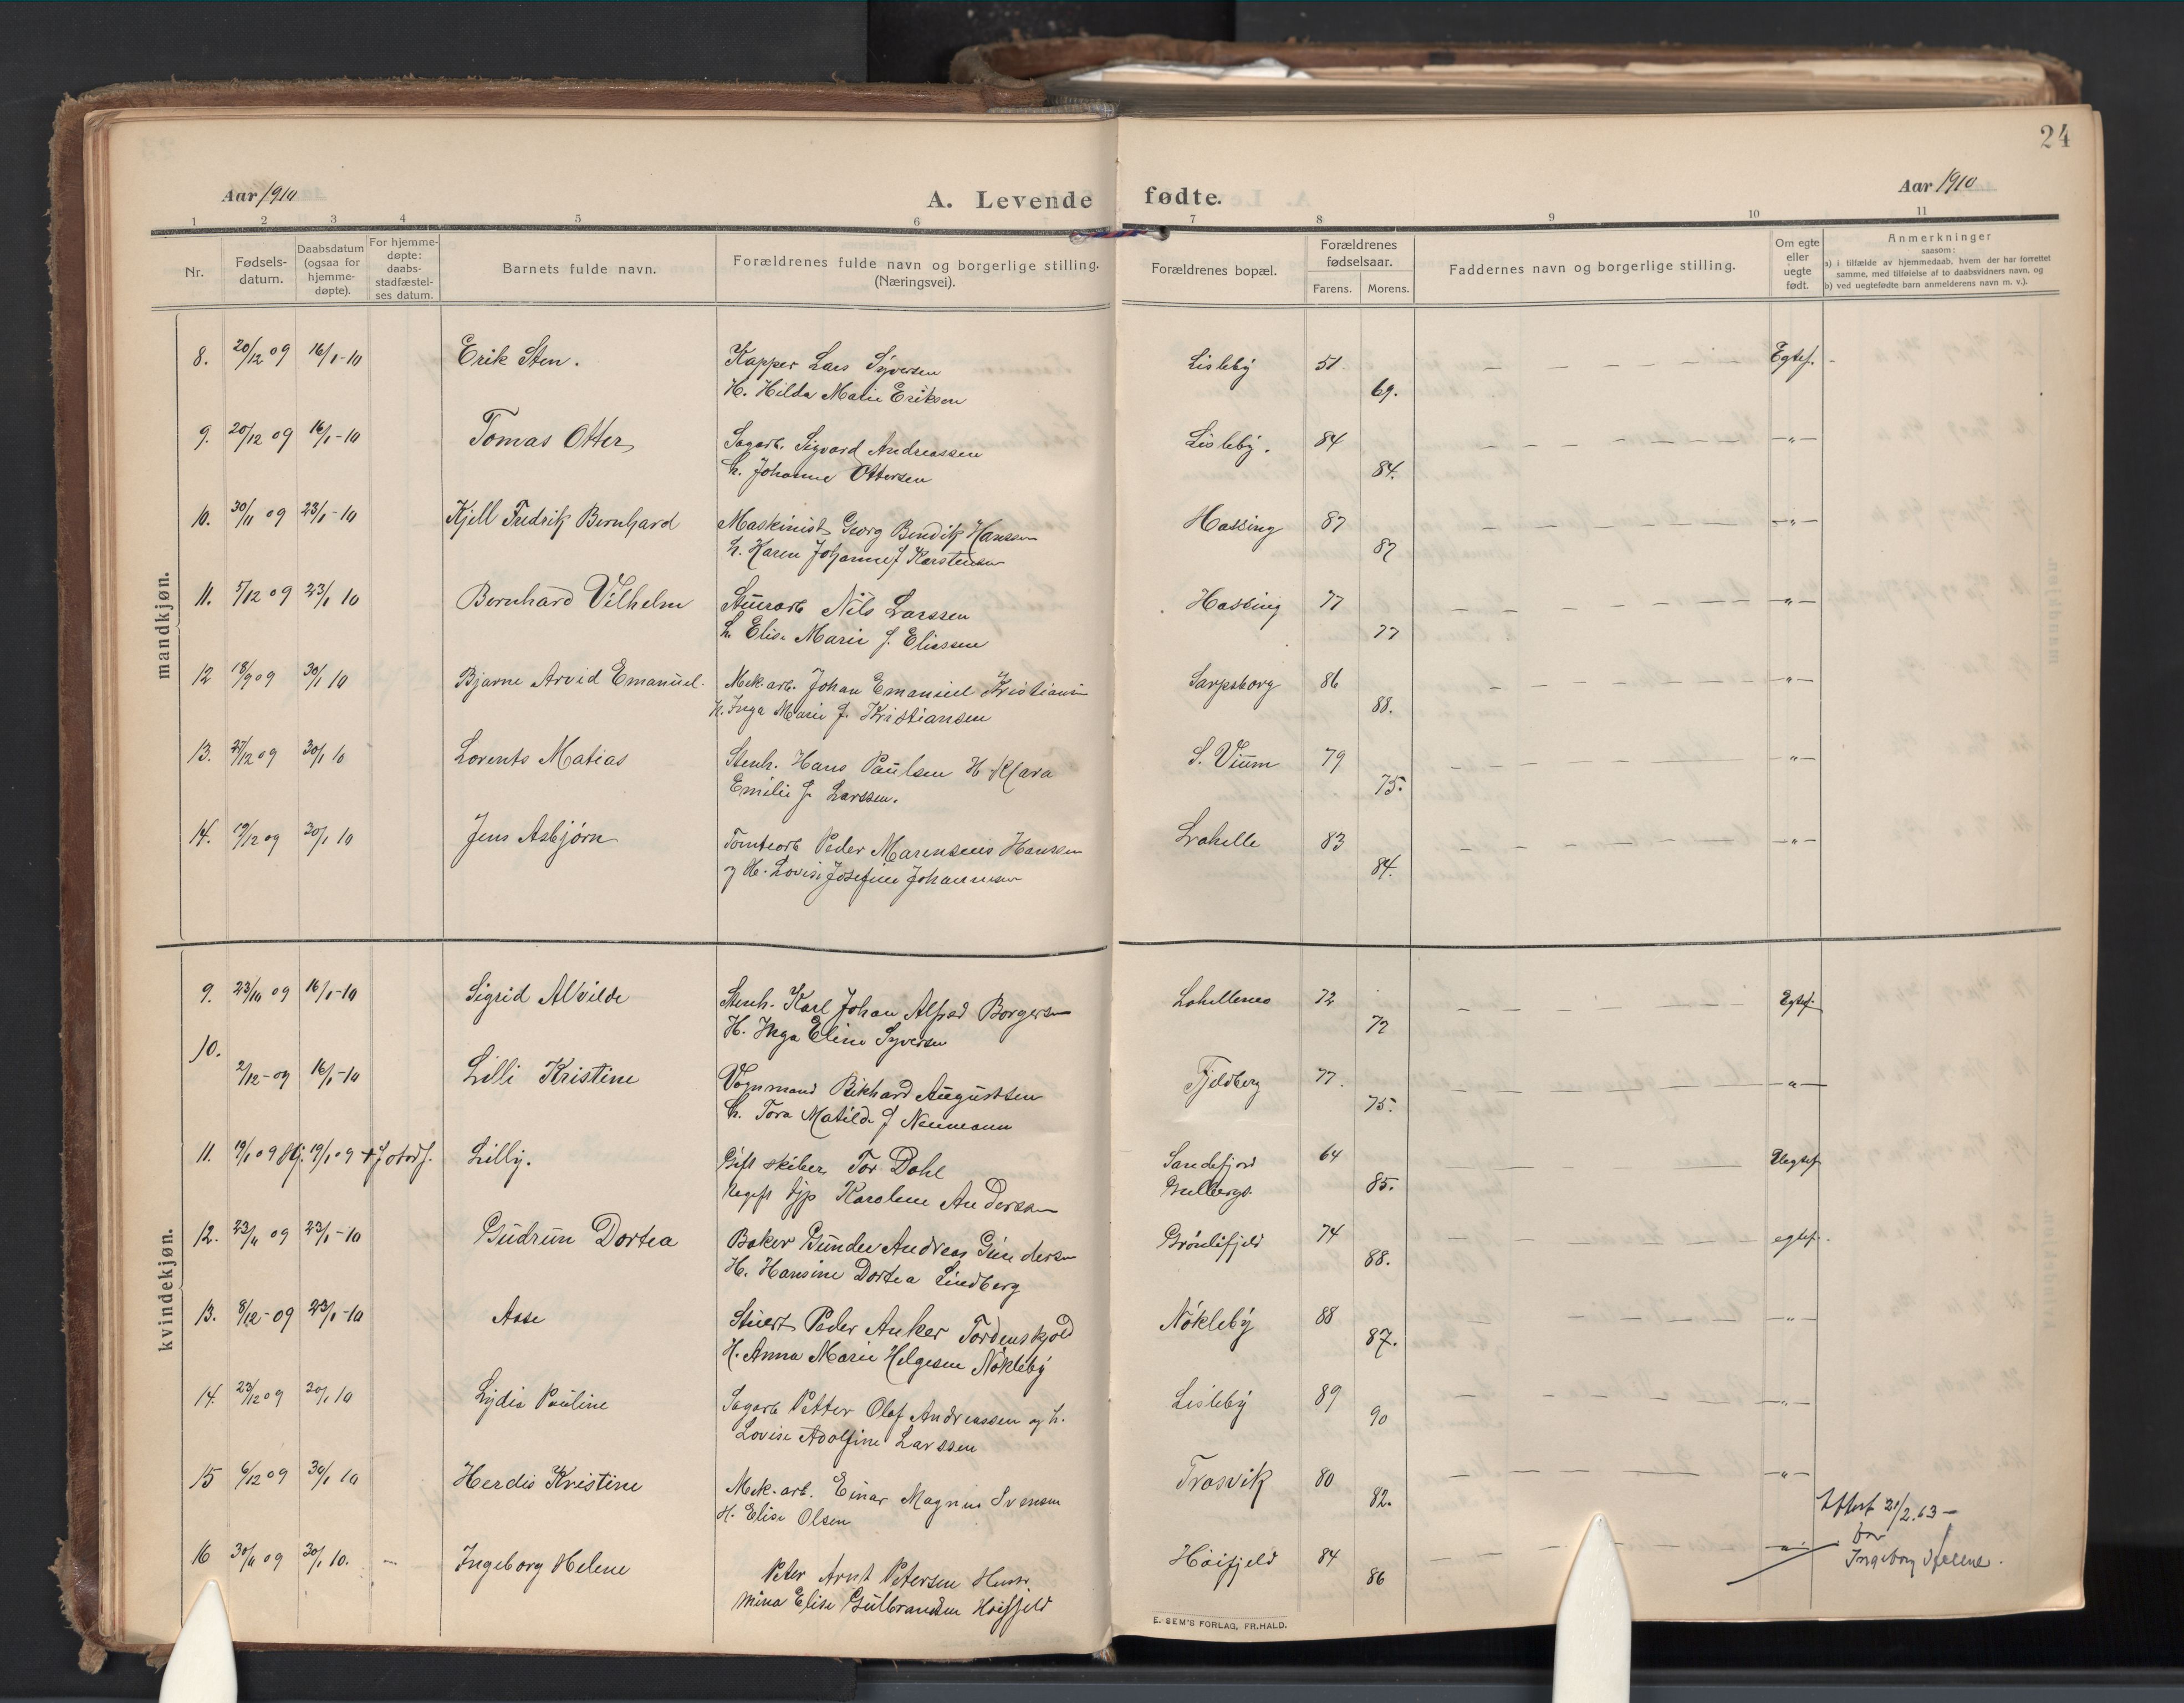 24
Aar 1910
A. Levende fødte.
Aar 1910
1 2 3 4 5 6 7 8 9 10 11
Nr.
Fødsels-
datum.
Daabsdatum
(ogsaa for
hjemme-
døpte).
For hjemme-
døpte:
daabs-
stadfæstel-
ses datum.
Barnets fulde navn.
Forældrenes fulde navn og borgerlige stilling.
(Næringsvei).
Forældrenes bopæl.
Forældrenes
fødselsaar.
Farens. Morens.
Faddernes navn og borgerlige stilling.
Om egte
eller
uegte
født.
Anmerkninger
saasom:
a) i tilfælde av hjemmedaab, hvem der har forrettet
samme, med tilføielse af to daabsvidners navn, og
b) ved uegtefødte barn anmelderens navn m. v.).
mandkjøn.
8. 20/12 09 16/1-10 Erik Sten. Kapper Lars Syversen Lisleby 51. Egtef.
H. Hilda Marie Eriksen 69.
9. 20/12 09 16/1-10 Tomas Otter Sagarb. Sigvard Andreassen Lisleby. 84 —"—
h. Johanne Ottersen 84.
10. 30/11 09 23/1-10 Kjell Fredrik Bernhard Maskinist Georg Bendik Hanssen Hassing 87 —"—
h. Karen Johanne f Karstensen 87
11. 5/12 09 23/1 10 Bernhard Vilhelm Stuerarb Nils Larssen Hassing 77 —"—
h. Elise Marie f. Eliassen 77
12 18/9 09 30/1 10 Bjarne Arvid Emanuel. Mek. arb. Johan Emanuel Kristiansen Sarpsborg 86 —"—
h. Inga Marie f. Kristiansen 88.
13. 27/12 09 30/1 10 Lorents Matias Stenh. Hans Paulsen H Klara S. Vium 79 —"—
Emilie f. Larssen. 75.
14. 19/12 09 30/1 10 Jens Asbjørn Tomtearb Peder Marensius Hanssen Lahelle 83 —"—
og H. Lovise Josefine Johannesen 84.
kvindekjøn.
9. 23/10 09 16/1-10 Sigrid Alvilde Stenh. Karl Johan Alfred Borgersen Lahellenes 72 Egtef.
H. Inga Eline Syversen 72
10. 2/12-09 16/1-10 Lilli Kristine Vognmand Rikhard Augustsen Fjeldberg 77. —"—
h. Tora Matilde f Neumann 75.
11. 19/1 09 19/1 09 Lilly. Gift skiber Tor Dahl Sandefjord 64 Uegtef
Ugift Karoline Andersen 85.
12. 23/11 09 23/1-10 Gudrun Dortea Baker Gunder Andreas Gundersen Grønlifjeld 74 egtef.
H. Hansine Dortea Lindberg 88.
13. 8/12-09 23/1-10 Aase Stuert Peder Anker Tordenskjold Nökleby 88 —"—
H. Anna Marie Helgesen Nökleby 87.
14. 23/12 09 30/1 10 Lydia Pauline Sagarb Petter Olaf Andreassen og h. Lisleby 89 —"—
Lovise Adolfine Larssen 90
15 6/12 09 30/1 10 Herdis Kristine Mek. arb. Einar Magnus Svensen Trosvik 80 —"—
H. Elise Olsen 82.
16 30/11 09 30/1 10. — Ingeborg Helene Peter Arnt Petersen Hustr. Höifjeld 84 —"—
Mina Elise Gulbrandsen Höifjeld 86
Attest 21/2.63 —
for
Ingeborg Helene.
E. SEM'S FORLAG, FR.HALD.